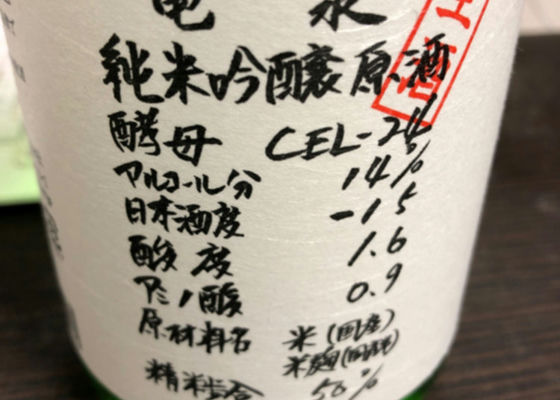 亀泉
純米吟醸原酒
酵母 CEL-24
アルコール分 14%
日本酒度 -15
酸度 1.6
アミノ酸 0.9
原材料名 米(国産)
米麹(国産米)
精米歩合 50%